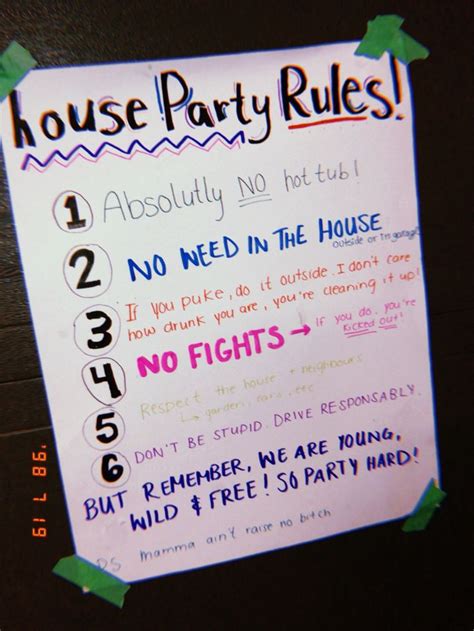 house Party Rules!
1 Absolutly NO hot tub!
2 NO WEED IN THE HOUSE
outside or in garage
3 If you puke, do it outside. I don't care
how drunk you are, you're cleaning it up!
4 NO FIGHTS → if you do, you're
KICKED OUT!
5 Respect the house + neighbours
↳ garden, cars, etc
6 DON'T BE STUPID. DRIVE RESPONSABLY.
BUT REMEMBER, WE ARE YOUNG,
WILD & FREE! SO PARTY HARD!
PS mamma ain't raise no bitch
'98 7 19